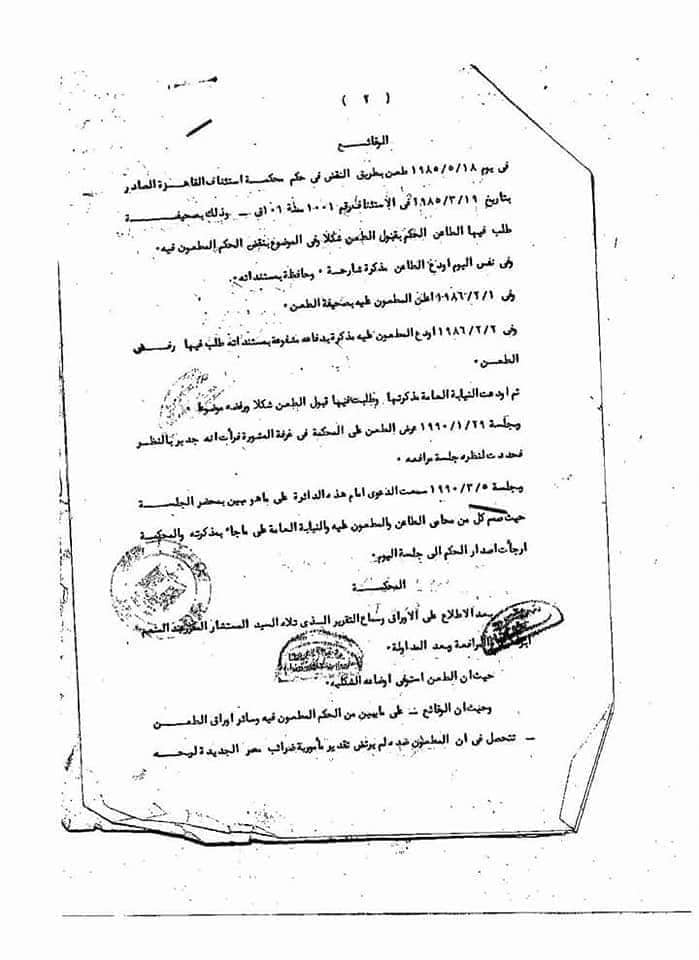 ( ٢ )
الوقائــــع
فى يوم ١٩٨٥/٥/١٨ طعن بطريق النقض فى حكم محكمــة استئناف القاهــرة الصادر
بتاريخ ١٩٨٥/٣/١٩ فى الاستئناف رقم ١٠٠١ سنة ١٠١ق ــ وذلك بصحيفــــــة
طلب فيها الطاعن الحكم بقبول الطعن شكلا وفى الموضوع بنقض الحكم المطعون فيه٠
وفى نفس اليوم اودع الطاعن مذكرة شارحة ٠ وحافظة بمستنداته٠
وفى ١٩٨٦/٢/١ اعلن المطعون عليه بصحيفة الطعن٠
وفى ١٩٨٦/٢/٢ اودع المطعون عليه مذكرة بدفاعه مشفوعة بمستنداته طلب فيها رفــض
الطعــن٠
ثم اودعت النيابة العامة مذكرتها وطلبت فيها قبول الطعن شكلا ورفضه موضوعا ٠
وبجلسة ١٩٩٠/١/٢٩ عرض الطعن على المحكمة فى غرفة المشورة فرأت انه جدير بالنظر
فحددت لنظره جلسة مرافعه ٠
وبجلسة ١٩٩٠/٣/٥ سمعت الدعوى امام هذه الدائرة على ماهو مبين بمحضر الجلســة
حيث صمم كل من محامى الطاعن والمطعون عليه والنيابة العامة على ماجاء بمذكرته والمحكمة
ارجأت اصدار الحكم الى جلسة اليوم٠
المحكمــــة
بعد الاطلاع على الاوراق وسماع التقرير الــذى تلاه السيد المستشار المقرر
المرافعة وبعد المداولة٠
حيث ان الطعن استوفى اوضاعه الشكليه٠
وحيث ان الوقائع ــ على مايبين من الحكم المطعون فيه وسائر اوراق الطعــــن
ــ تتحصل فى ان المطعون ضده لم يرتض تقدير مأمورية ضرائب مصر الجديدة لربحــه